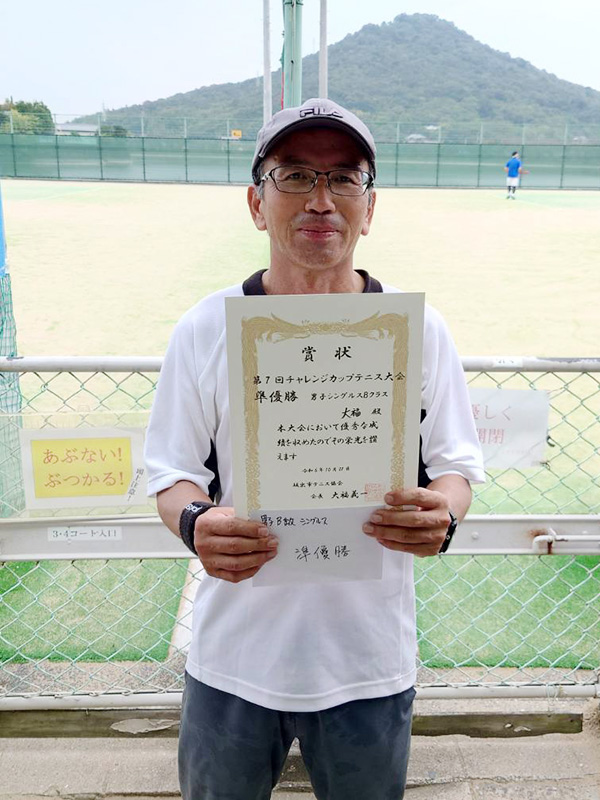 FILA
賞状
第7回チャレンジカップテニス大会
準優勝 男子シングルスBクラス
大福 殿
本大会において優秀な成
績を収めたのでその栄光を讃
えます
令和5年10月
坂出市テニス協会
会長 大福義一
男子B級 シングルス
準優勝
あぶない!
ぶつかる!
3・4コート入口
優しく
開閉